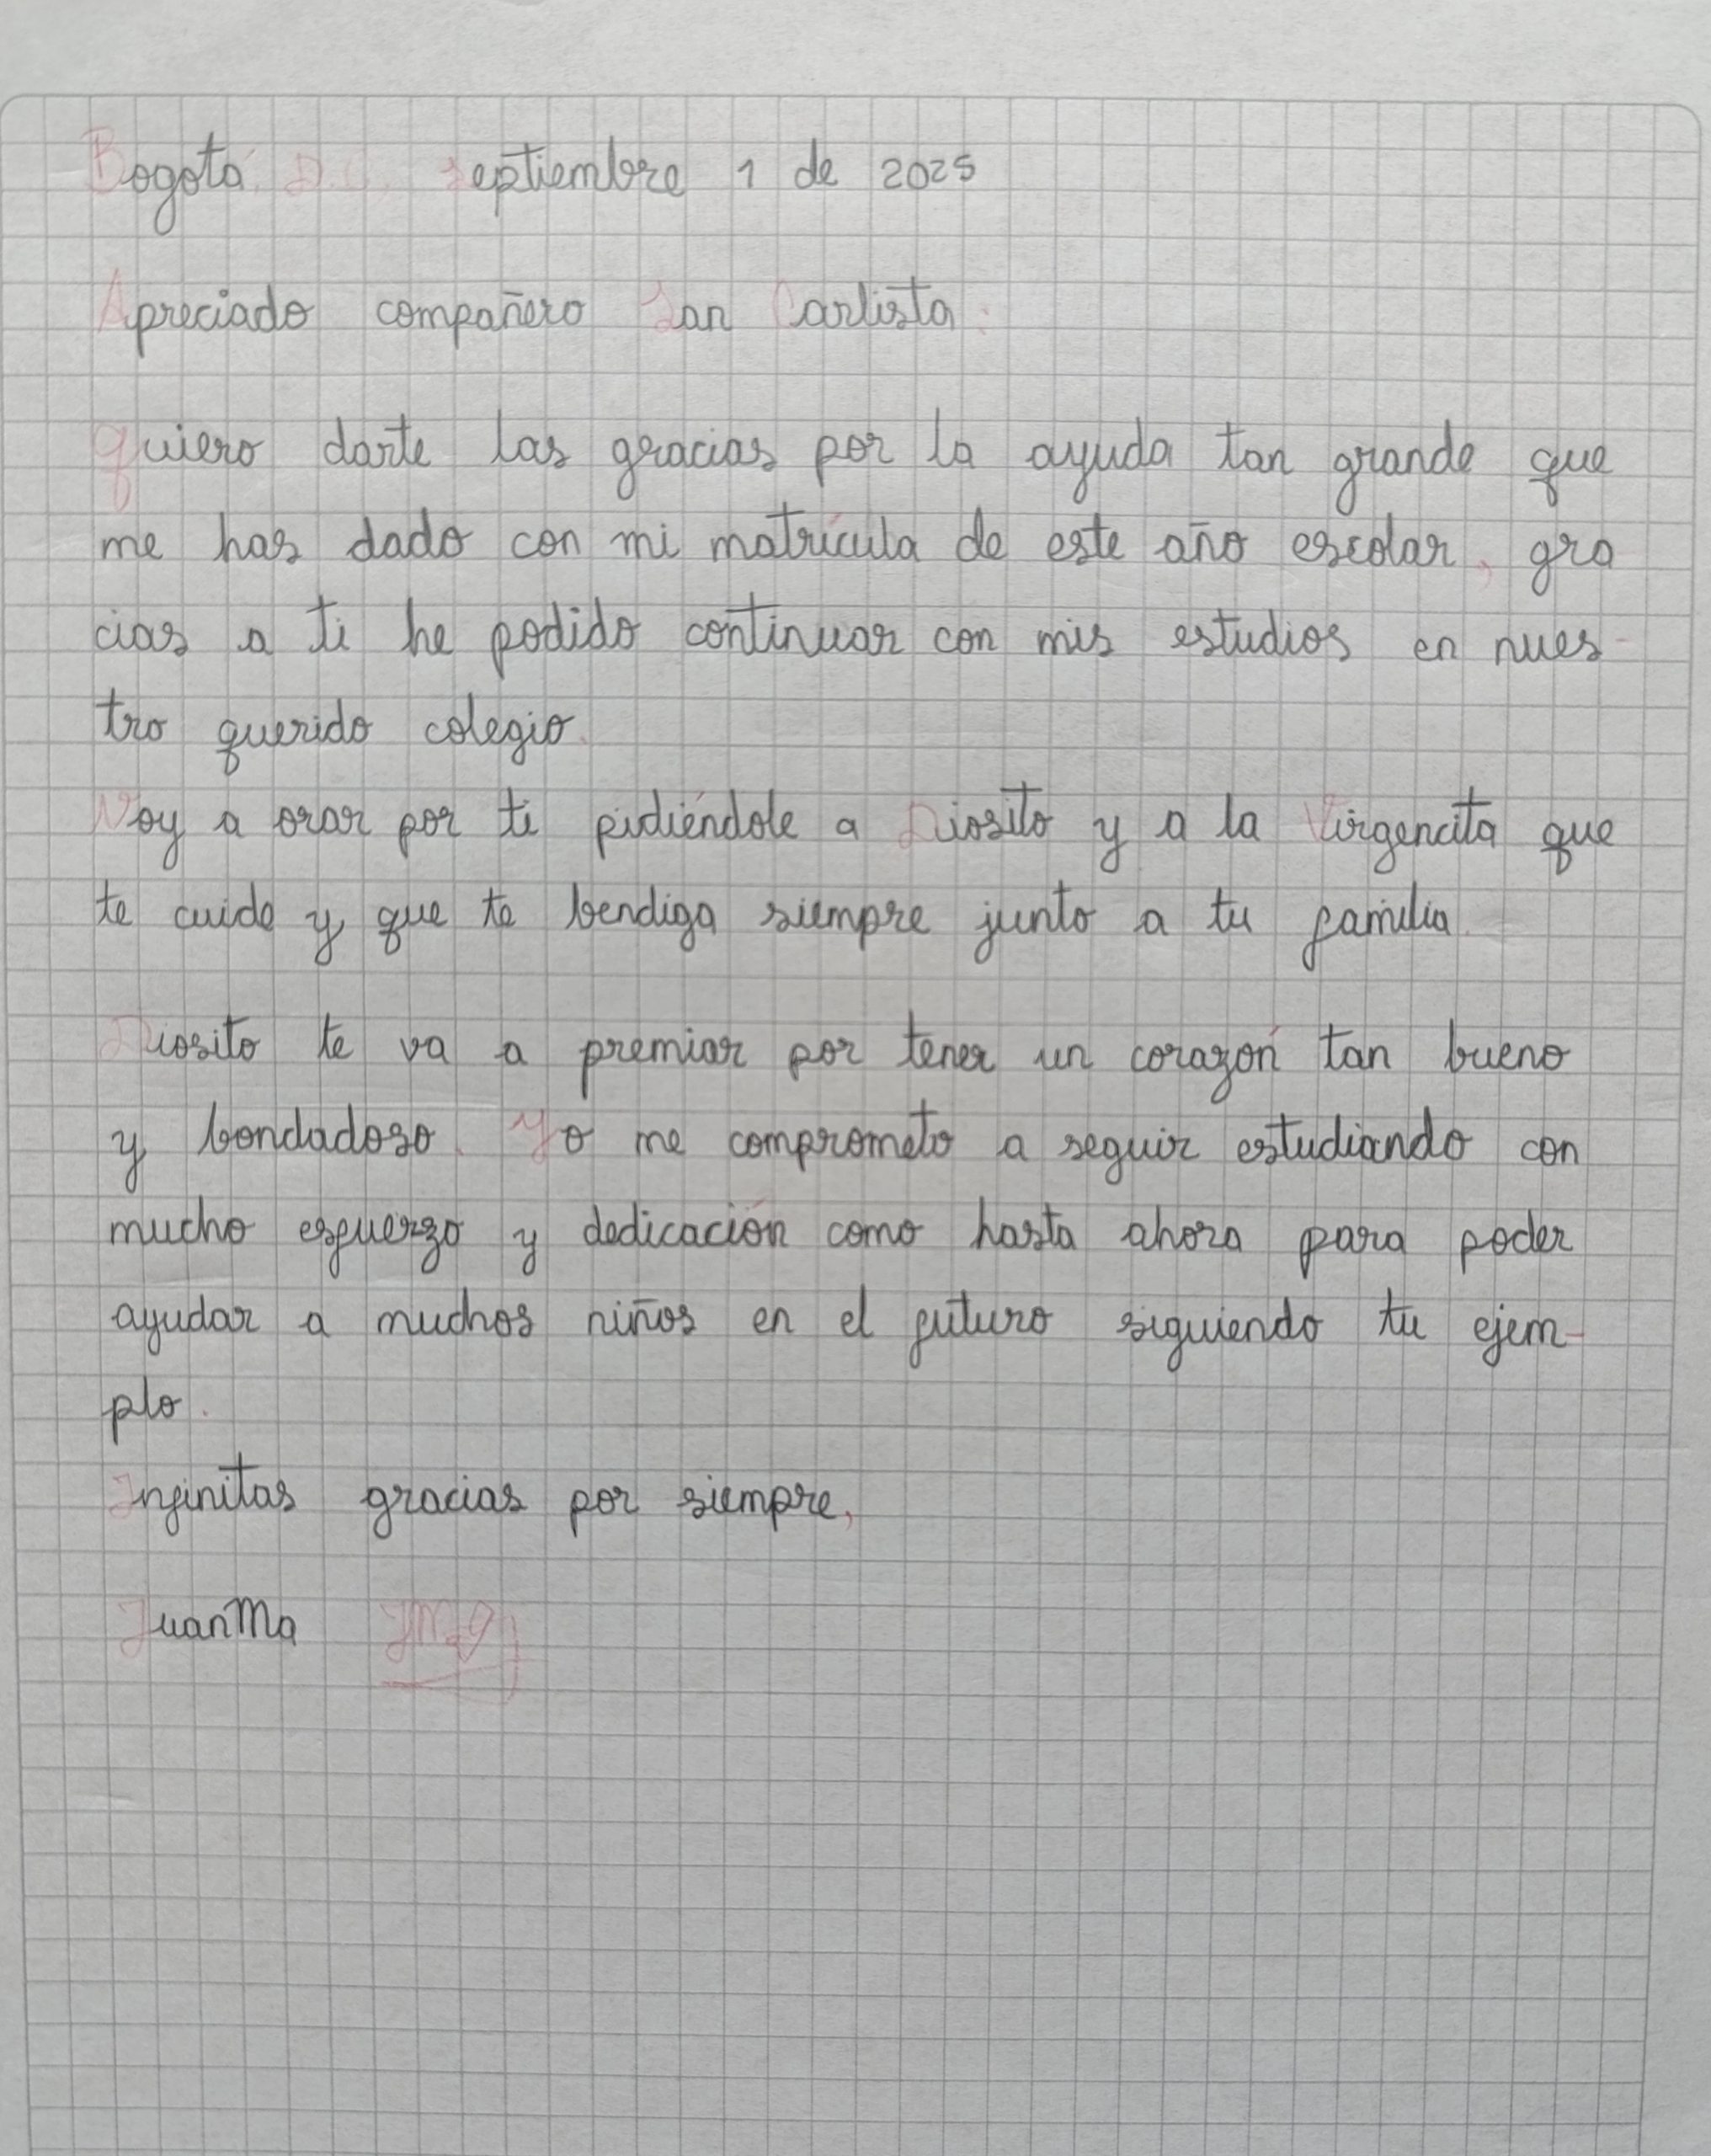 Bogotá D.C. Septiembre 1 de 2025
Apreciado compañero San Carlista:
Quiero darte las gracias por la ayuda tan grande que
me has dado con mi matrícula de este año escolar, gra
cias a ti he podido continuar con mis estudios en nues-
tro querido colegio.
Voy a orar por ti pidiéndole a Diosito y a la Virgencita que
te cuide y que te bendiga siempre junto a tu familia.
Diosito te va a premiar por tener un corazón tan bueno
y bondadoso. Yo me comprometo a seguir estudiando con
mucho esfuerzo y dedicación como hasta ahora para poder
ayudar a muchos niños en el futuro siguiendo tu ejem-
plo.
Infinitas gracias por siempre,
JuanMa